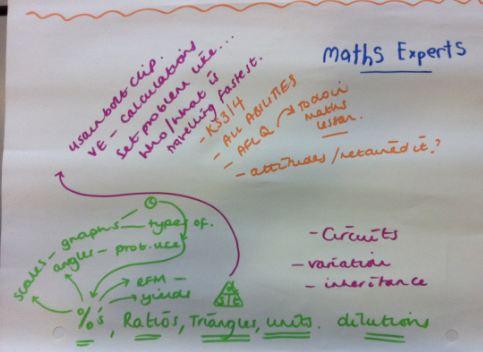 Maths Experts
usain bolt clip.
VE - calculations
set problem like...
who/what is
travelling fastest.
- KS3/4
- ALL ABILITIES
- AFL Q → To do in
maths
lesson.
- attitudes/retained it?
scales - graphs - types of.
angles - prob. use
RFM -
yields
- Circuits
- variation
- inheritance
%'s, Ratios, Triangles, units. dilutions